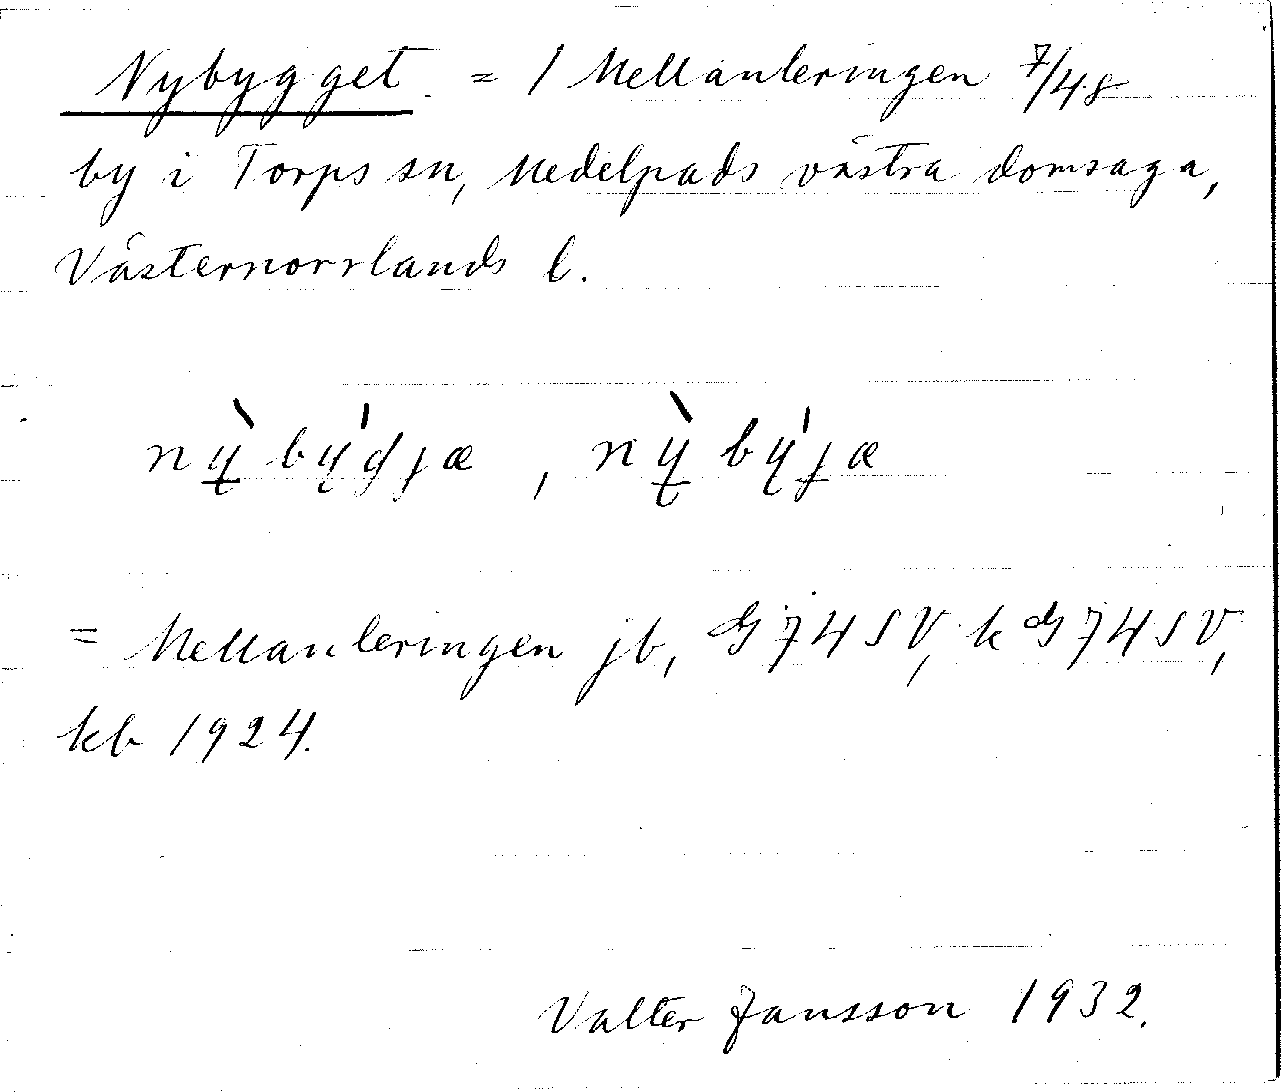 Nybygget. = 1 Mellanleringen 7/48
by i Torps sn, Medelpads västra domsaga,
Västernorrlands l.
nỳ̱ býdjæ, nỳ̱ býj̱æ
= Mellanleringen jb, G 74 SV, k G 74 SV,
kb 1924.
Valter Jansson 1932.